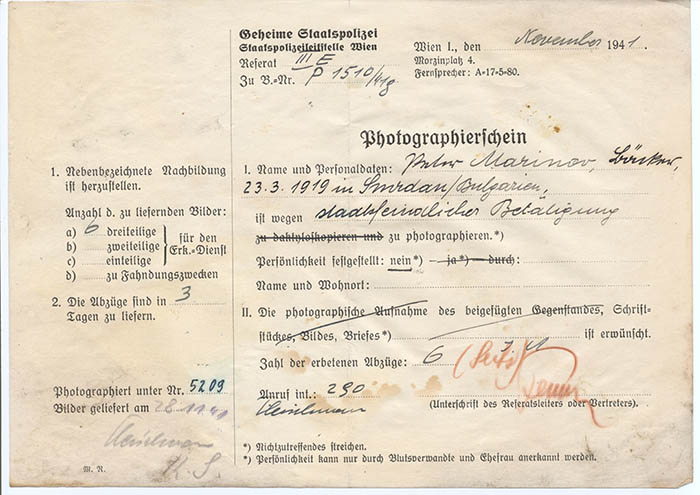 Geheime Staatspolizei
Staatspolizeileitstelle Wien
Referat III E
Zu B.=Nr. P 1510/41g
Wien I., den November 1941.
Morzinplatz 4.
Fernsprecher: A=17=5=80.
Photographierschein
1. Nebenbezeichnete Nachbildung
ist herzustellen.
Anzahl d. zu liefernden Bilder:
a) 6 dreiteilige
b) zweiteilige
c) einteilige
für den
Erk.=Dienst
d) zu Fahndungszwecken
2. Die Abzüge sind in 3
Tagen zu liefern.
Photographiert unter Nr. 5209
Bilder geliefert am 28.11.41
K. S.
M. R.
I. Name und Personaldaten: Peter Marinov, Bäcker,
23.3.1919 in Smrdan/Bulgarien,
ist wegen staatsfeindlicher Betätigung
zu daktyloskopieren und zu photographieren.*)
Persönlichkeit festgestellt: nein*) – ja*) – durch:
Name und Wohnort:
II. Die photographische Aufnahme des beigefügten Gegenstandes, Schrift=
stückes, Bildes, Briefes*) ist erwünscht.
Zahl der erbetenen Abzüge: 6
Anruf int.: 290
(Unterschrift des Referatsleiters oder Vertreters).
*) Nichtzutreffendes streichen.
*) Persönlichkeit kann nur durch Blutsverwandte und Ehefrau anerkannt werden.